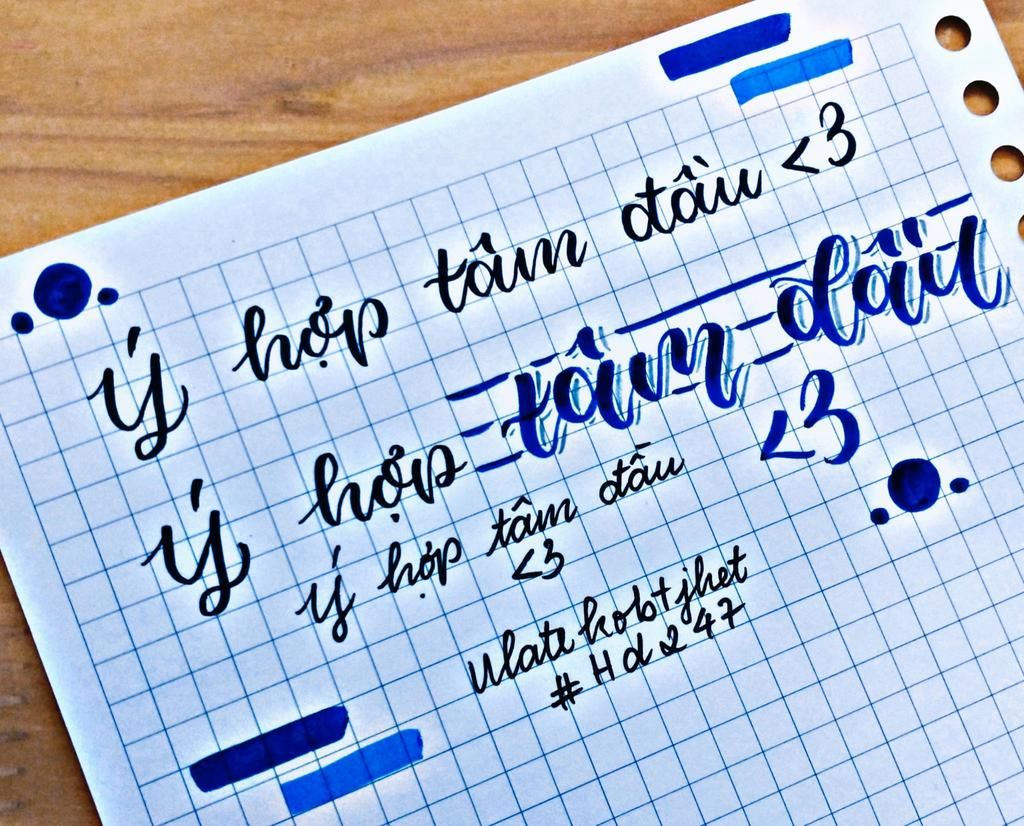 Ý hợp tâm đầu <3
Ý hợp tâm đầu
<3
ý hợp tâm đầu
<3
Ulatr kobt jhet
#Hd247